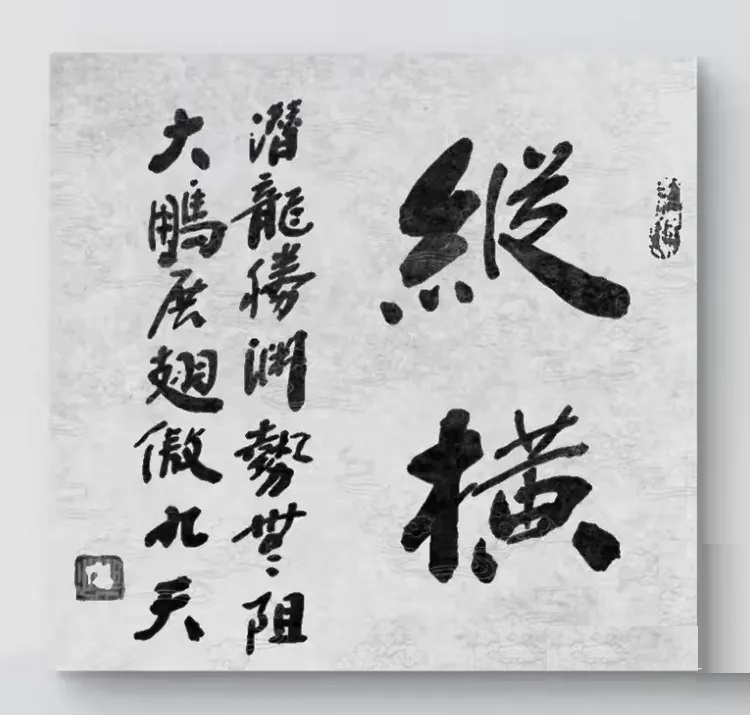 縱橫
潛龍勝淵勢無阻
大鵬展翅傲九天